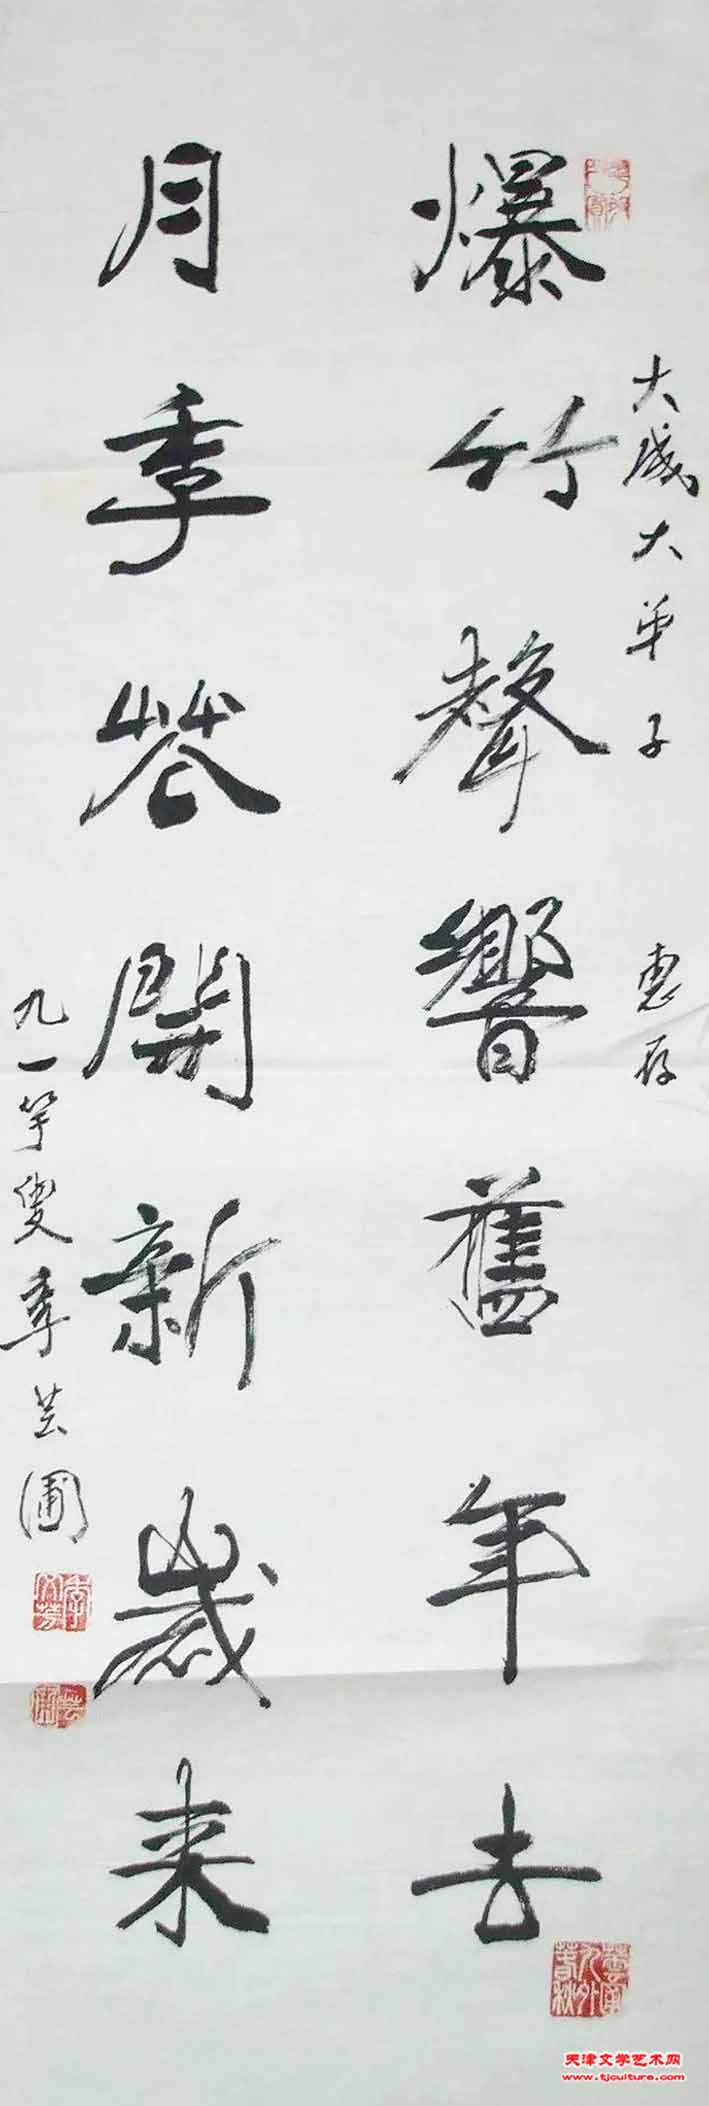 大成大弟子 惠存
爆竹聲響舊年去
月季花開新歲来
九一竽叟季芸圃
天津文学艺术网
www.tjculture.com